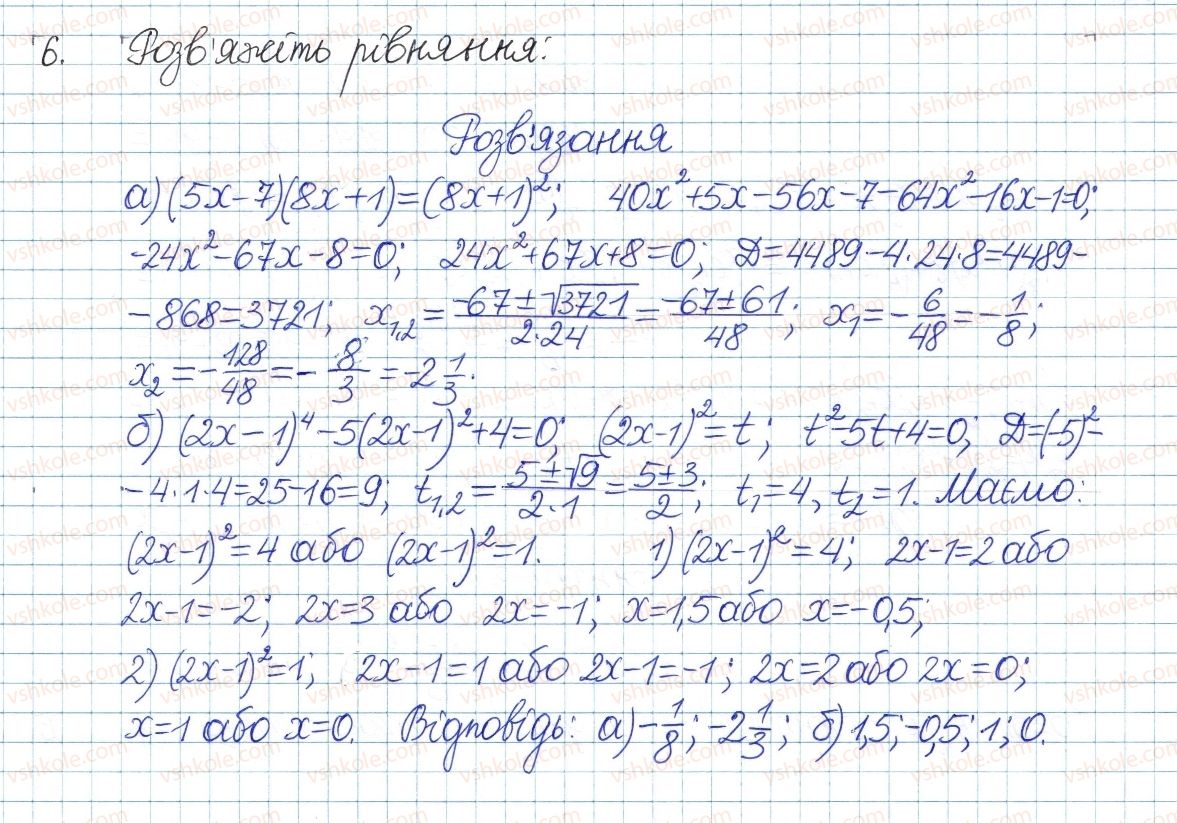 6. Розв'яжіть рівняння:
Розв'язання
а) (5x-7)(8x+1)=(8x+1)²; 40x²+5x-56x-7-64x²-16x-1=0;
-24x²-67x-8=0; 24x²+67x+8=0; D=4489-4·24·8=4489-
-868=3721; x₁,₂ = (-67±√3721)/(2·24) = (-67±61)/48; x₁=-6/48=-1/8;
x₂=-128/48=-8/3=-2 1/3.
б) (2x-1)⁴-5(2x-1)²+4=0; (2x-1)²=t; t²-5t+4=0; D=(-5)²-
-4·1·4=25-16=9; t₁,₂ = (5±√9)/(2·1) = (5±3)/2; t₁=4, t₂=1. Маємо:
(2x-1)²=4 або (2x-1)²=1. 1) (2x-1)²=4; 2x-1=2 або
2x-1=-2; 2x=3 або 2x=-1; x=1,5 або x=-0,5;
2) (2x-1)²=1; 2x-1=1 або 2x-1=-1; 2x=2 або 2x=0;
x=1 або x=0. Відповідь: а) -1/8; -2 1/3; б) 1,5; -0,5; 1; 0.